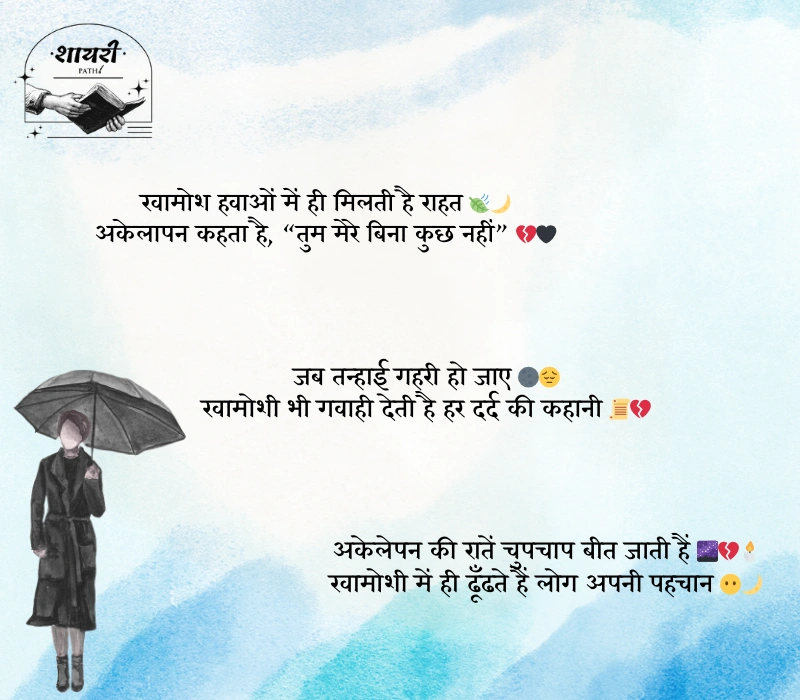 शायरी
PATH
खामोश हवाओं में ही मिलती है राहत 🍃🌙
अकेलापन कहता है, “तुम मेरे बिना कुछ नहीं” 💔🖤
जब तन्हाई गहरी हो जाए 🌑😔
खामोशी भी गवाही देती है हर दर्द की कहानी 📜💔
अकेलेपन की रातें चुपचाप बीत जाती हैं 🌌💔🕯️
खामोशी में ही ढूँढते हैं लोग अपनी पहचान 😶🌙